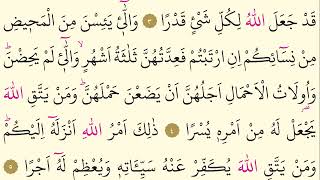 قَدْ جَعَلَ اللّٰهُ لِكُلِّ شَيْءٍ قَدْرًا ﴿٣﴾ وَالّٰٓـِٔي يَئِسْنَ مِنَ الْمَحٖيضِ
مِنْ نِسَٓائِكُمْ اِنِ ارْتَبْتُمْ فَعِدَّتُهُنَّ ثَلٰثَةُ اَشْهُرٍ وَالّٰٓـِٔي لَمْ يَحِضْنَ
وَاُولَاتُ الْاَحْمَالِ اَجَلُهُنَّ اَنْ يَضَعْنَ حَمْلَهُنَّ وَمَنْ يَتَّقِ اللّٰهَ
يَجْعَلْ لَهُ مِنْ اَمْرِهٖ يُسْرًا ﴿٤﴾ ذٰلِكَ اَمْرُ اللّٰهِ اَنْزَلَهُٓ اِلَيْكُمْ
وَمَنْ يَتَّقِ اللّٰهَ يُكَفِّرْ عَنْهُ سَيِّـَٔاتِهٖ وَيُعْظِمْ لَهُٓ اَجْرًا ﴿٥﴾